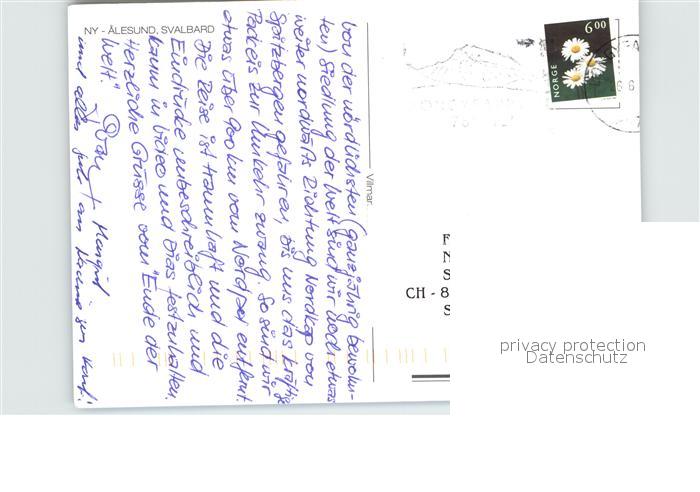 NY - ÅLESUND, SVALBARD
Von der nördlichsten (ganzjährig bewohn-
ten) Siedlung der Welt sind wir noch etwas
weiter nordwärts Richtung Nordkap von
Spitzbergen gefahren, bis uns das kräftige
Packeis zur Umkehr zwang. So sind wir
etwas über 900 km vom Nordpol entfernt.
Die Reise ist traumhaft und die
Eindrücke unbeschreiblich und
kaum in Video und Dias festzuhalten.
Herzliche Grüsse vom "Ende der
Welt". + Margrit
und alles gute
Vilmar
6 00
NORGE
F
N
S
CH - 8
S
privacy protection
Datenschutz